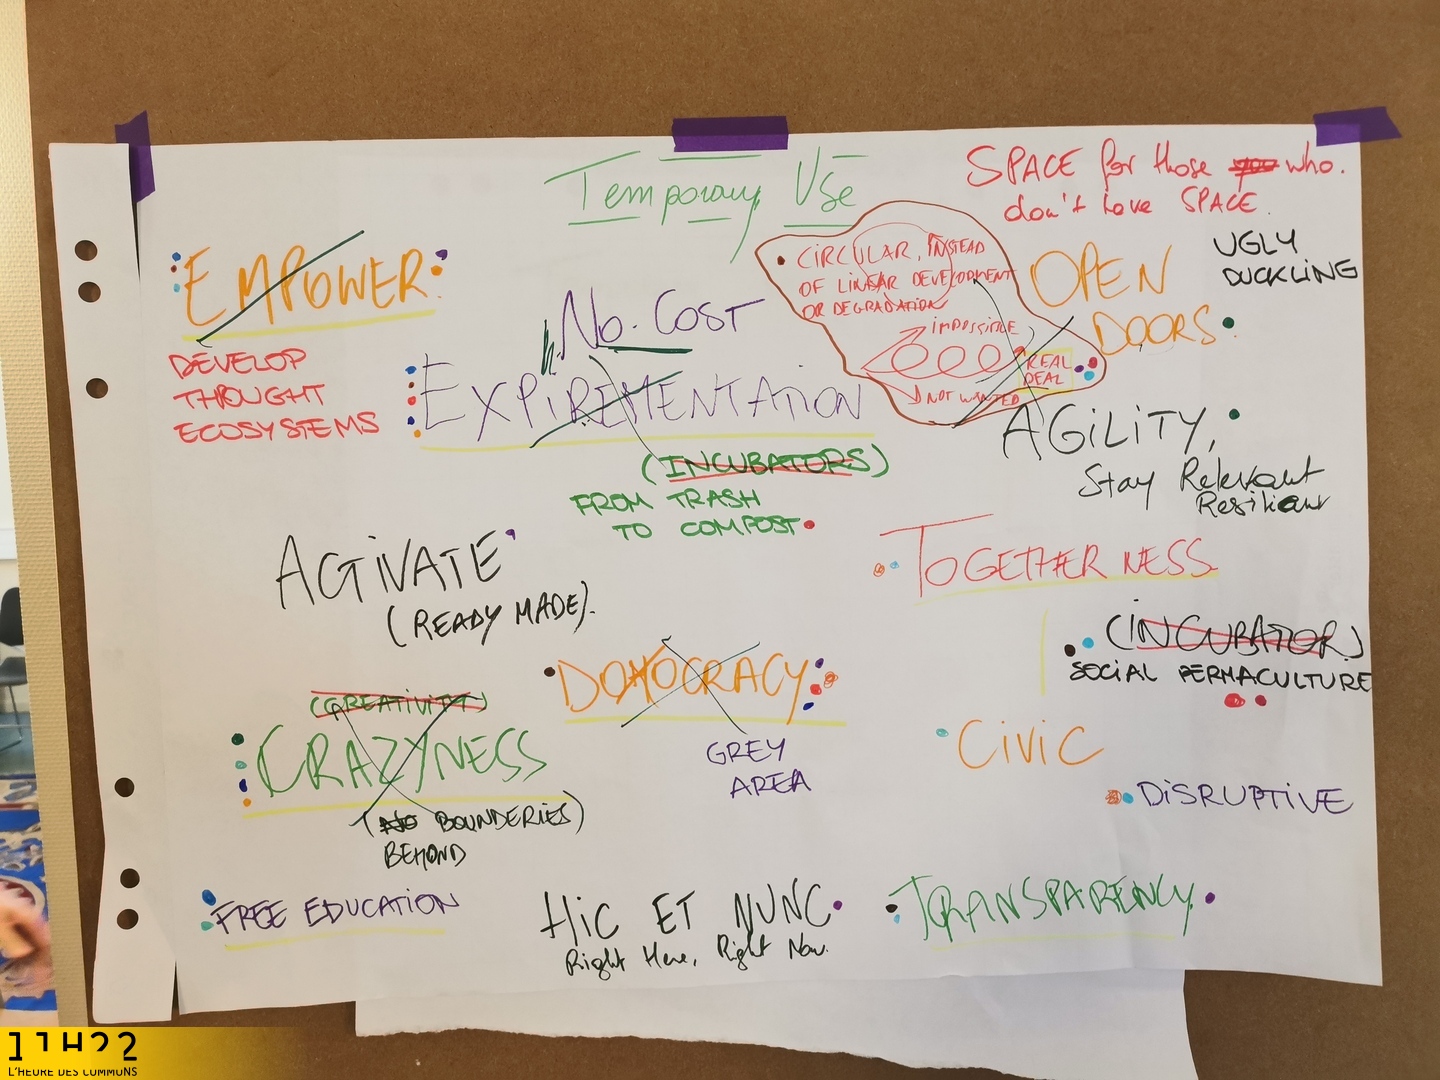 Temporary Use
SPACE for those who.
don't have SPACE.
UGLY
DUCKLING
EMPOWER.
DEVELOP
THOUGHT
ECOSYSTEMS
No. COST
CIRCULAR, INSTEAD
OF LINEAR DEVELOPMENT
OR DEGRADATION
IMPOSSIBLE
REAL
DEAL
NOT WANTED
OPEN
DOORS
EXPIREMENTATION
(INCUBATORS)
FROM TRASH
TO COMPOST
AGILITY,
Stay Relevant
Resiliant
ACTIVATE
(READY MADE).
TOGETHERNESS
(INCUBATOR)
SOCIAL PERMACULTURE
DOMOCRACY
GREY
AREA
(CREATIVITY)
CRAZYNESS
(NO BOUNDERIES)
BEHOND
CIVIC
DISRUPTIVE
FREE EDUCATION
HIC ET NUNC
Right Here, Right Now.
TRANSPARENCY
11H22
L'HEURE DES COMMUNS